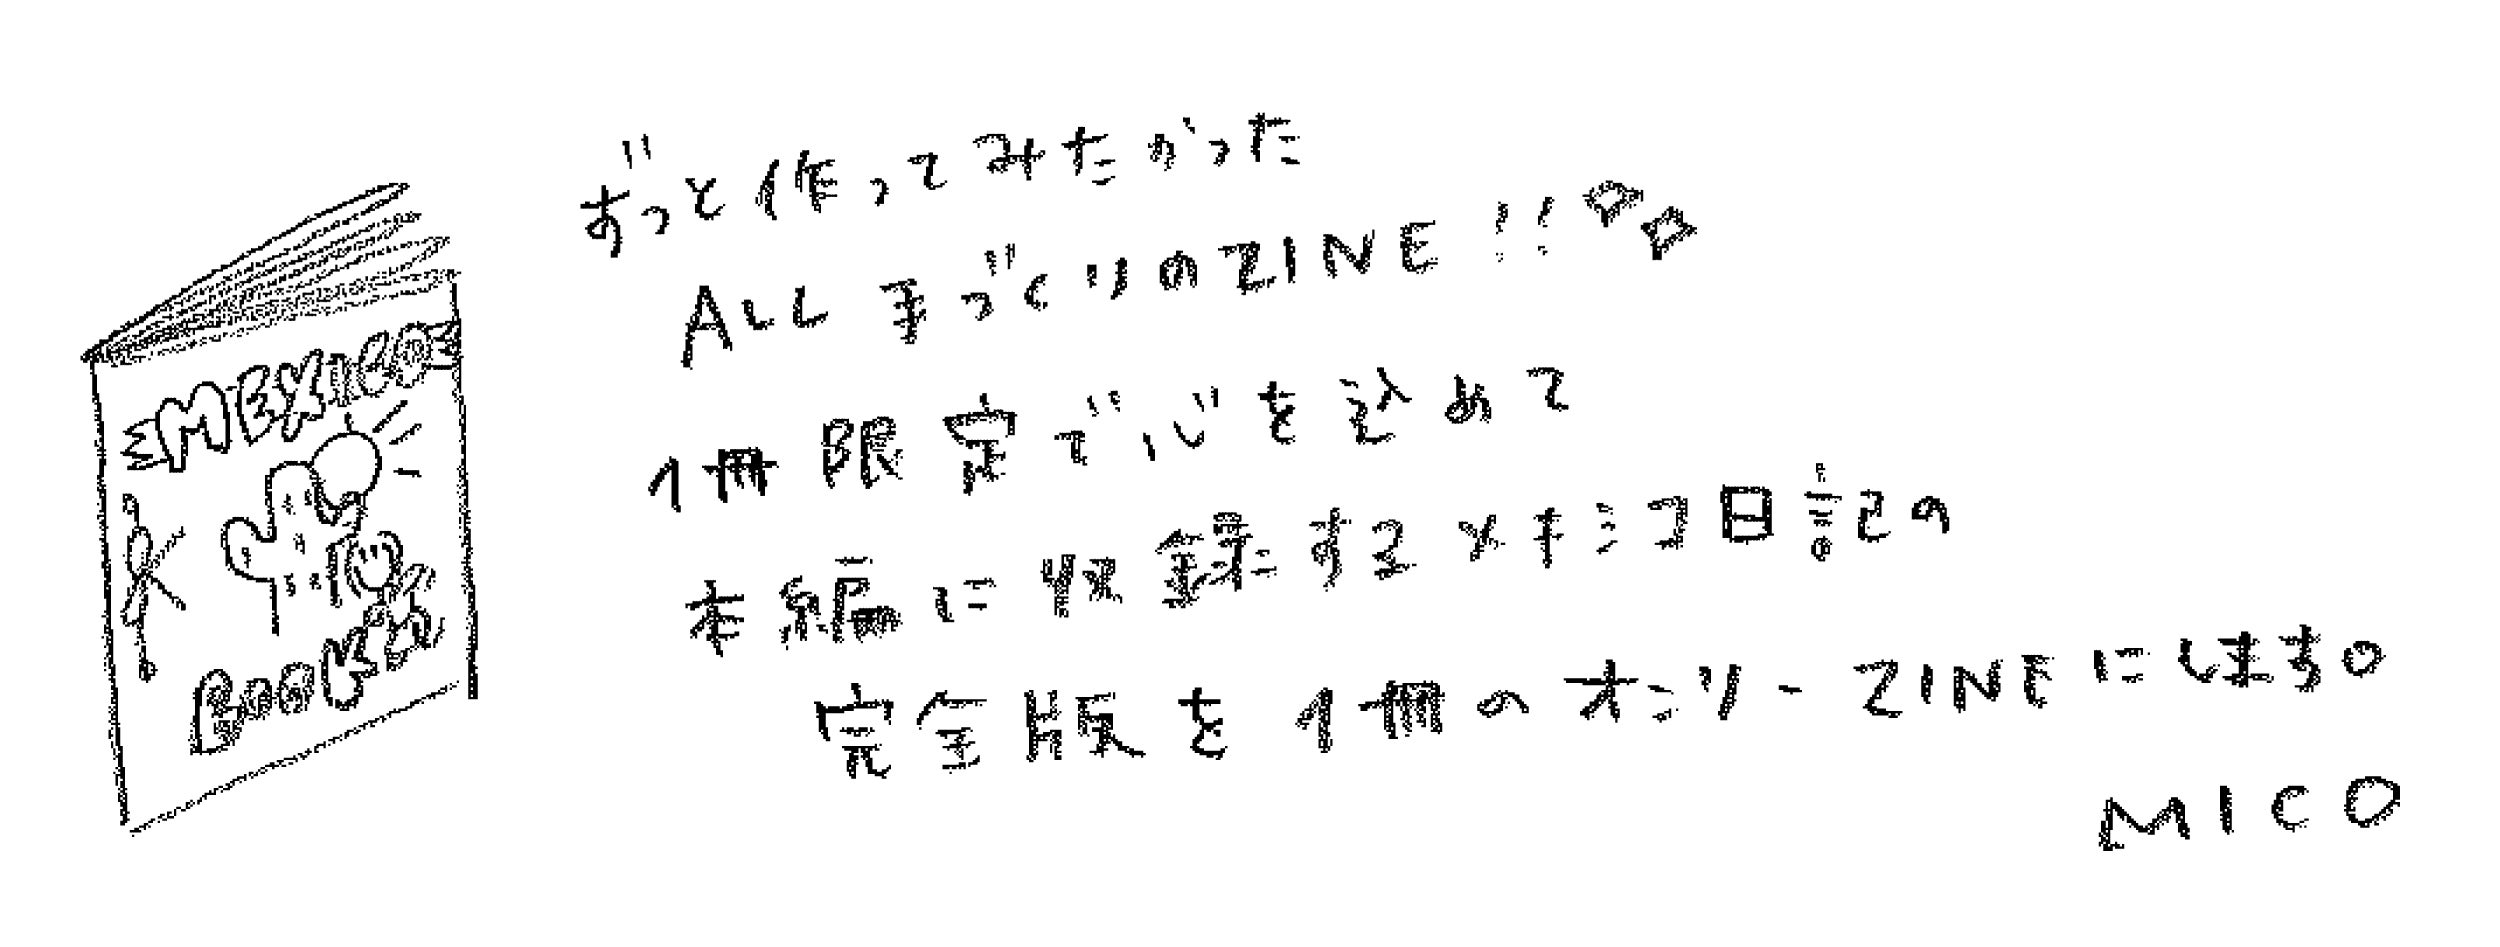 MEXICO
BOOK
ずっと作ってみたかった
ALL 手づくりのZINE!!
1冊限定で心を込めて
本編に収録するメキシコ日記の
完全版を1冊のオンリーZINEにします。
MICO